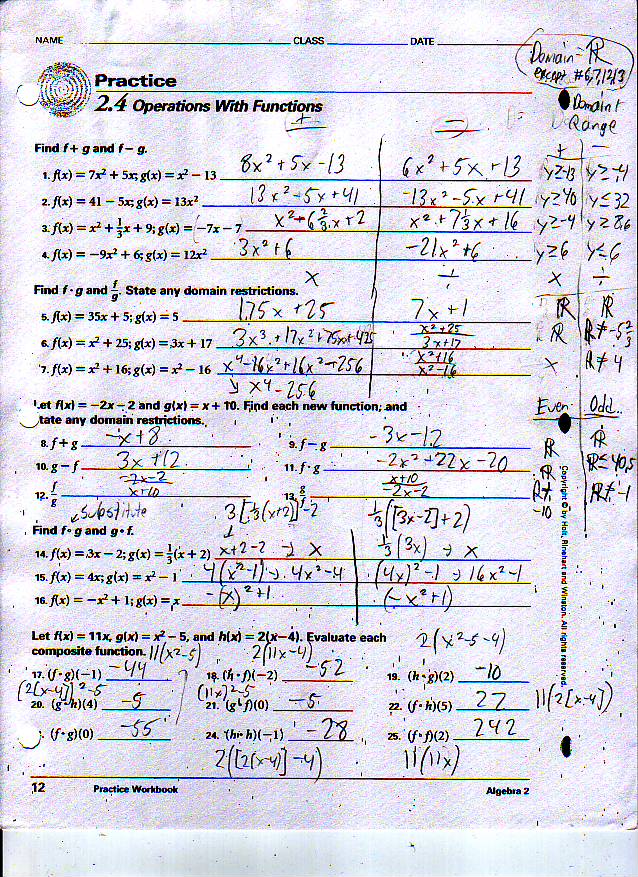 NAME CLASS DATE
Domain = ℝ
except #6,7,12,13
Practice
2.4 Operations With Functions
Domain +
Range
+ −
Find f + g and f − g.
+ −
1. f(x) = 7x² + 5x; g(x) = x² − 13 8x² + 5x −13 6x² + 5x + 13 y≥-13 y≥-4
2. f(x) = 41 − 5x; g(x) = 13x² 13x² −5x +41 −13x² −5x +41 y≥40 y≤32
3. f(x) = x² + 1/3x + 9; g(x) = −7x − 7 x² − 6 2/3 x + 2 x² + 7 1/3 x + 16 y≥-4 y≥8.6
4. f(x) = −9x² + 6; g(x) = 12x² 3x² + 6 −21x² + 6 y≥6 y≤6
x ÷ x ÷
Find f · g and f/g. State any domain restrictions.
5. f(x) = 35x + 5; g(x) = 5 175x + 25 7x + 1 ℝ ℝ
6. f(x) = x² + 25; g(x) = 3x + 17 3x³ + 17x² + 75x + 425 x² + 25 / 3x + 17 ℝ ℝ≠ -5 2/3
7. f(x) = x² + 16; g(x) = x² − 16 x⁴ −16x² + 16x² − 256 x² + 16 / x² − 16 x ℝ≠ 4
↘ x⁴ − 256
Let f(x) = −2x − 2 and g(x) = x + 10. Find each new function, and
state any domain restrictions.
Even Odd
8. f + g −x + 8 9. f − g −3x −12 ℝ ℝ
10. g − f 3x + 12 11. f · g −2x² + 22x − 20 ℝ ℝ≤ 40.5
12. f/g −2x−2 / x+10 13. g/f x+10 / −2x−2 ℝ≠ -10 ℝ≠ -1
substitute 3[1/3(x+2)] −2 1/3([3x−2] + 2)
Find f ∘ g and g ∘ f.
14. f(x) = 3x − 2; g(x) = 1/3(x + 2) x+2−2 → x 1/3(3x) → x
15. f(x) = 4x; g(x) = x² − 1 4(x²−1) → 4x² − 4 (4x)² −1 → 16x² − 1
16. f(x) = −x² + 1; g(x) = x −(x)² + 1 (−x² + 1)
Let f(x) = 11x, g(x) = x² − 5, and h(x) = 2(x−4). Evaluate each 2(x²−5−4)
composite function. 11(x²−5) 2(11x −4)
17. (f ∘ g)(−1) −44 18. (h ∘ f)(−2) −52 19. (h ∘ g)(2) −10
(2[x−4])² −5 (11x)² −5
20. (g ∘ h)(4) −5 21. (g ∘ f)(0) −5 22. (f ∘ h)(5) 22 11(2[x−4])
(f ∘ g)(0) −55 24. (h ∘ h)(−1) −28 25. (f ∘ f)(2) 242
2([2(x−4)] −4) 11(11x)
12 Practice Workbook Algebra 2
Copyright © by Holt, Rinehart and Winston. All rights reserved.